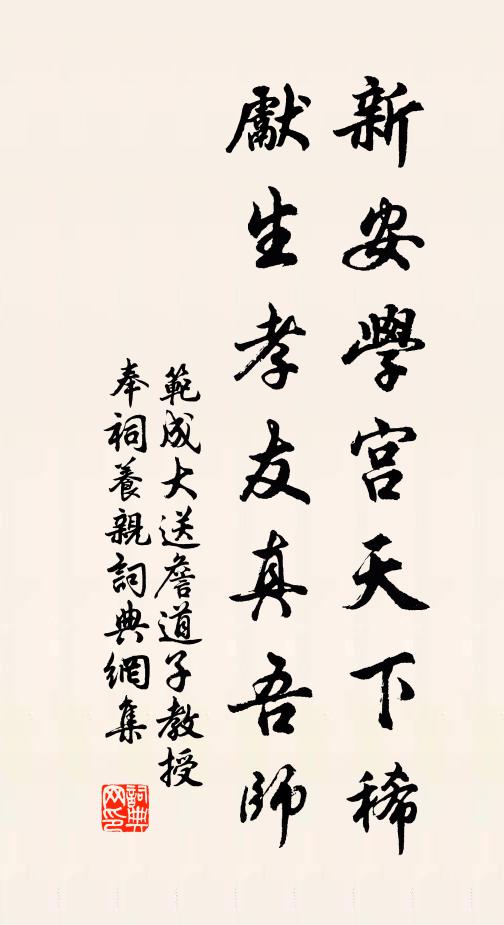 新安學宮天下稀
獻生孝友真吾師
範成大送詹道子教授
奉祠養親詞典網集
詞典网印